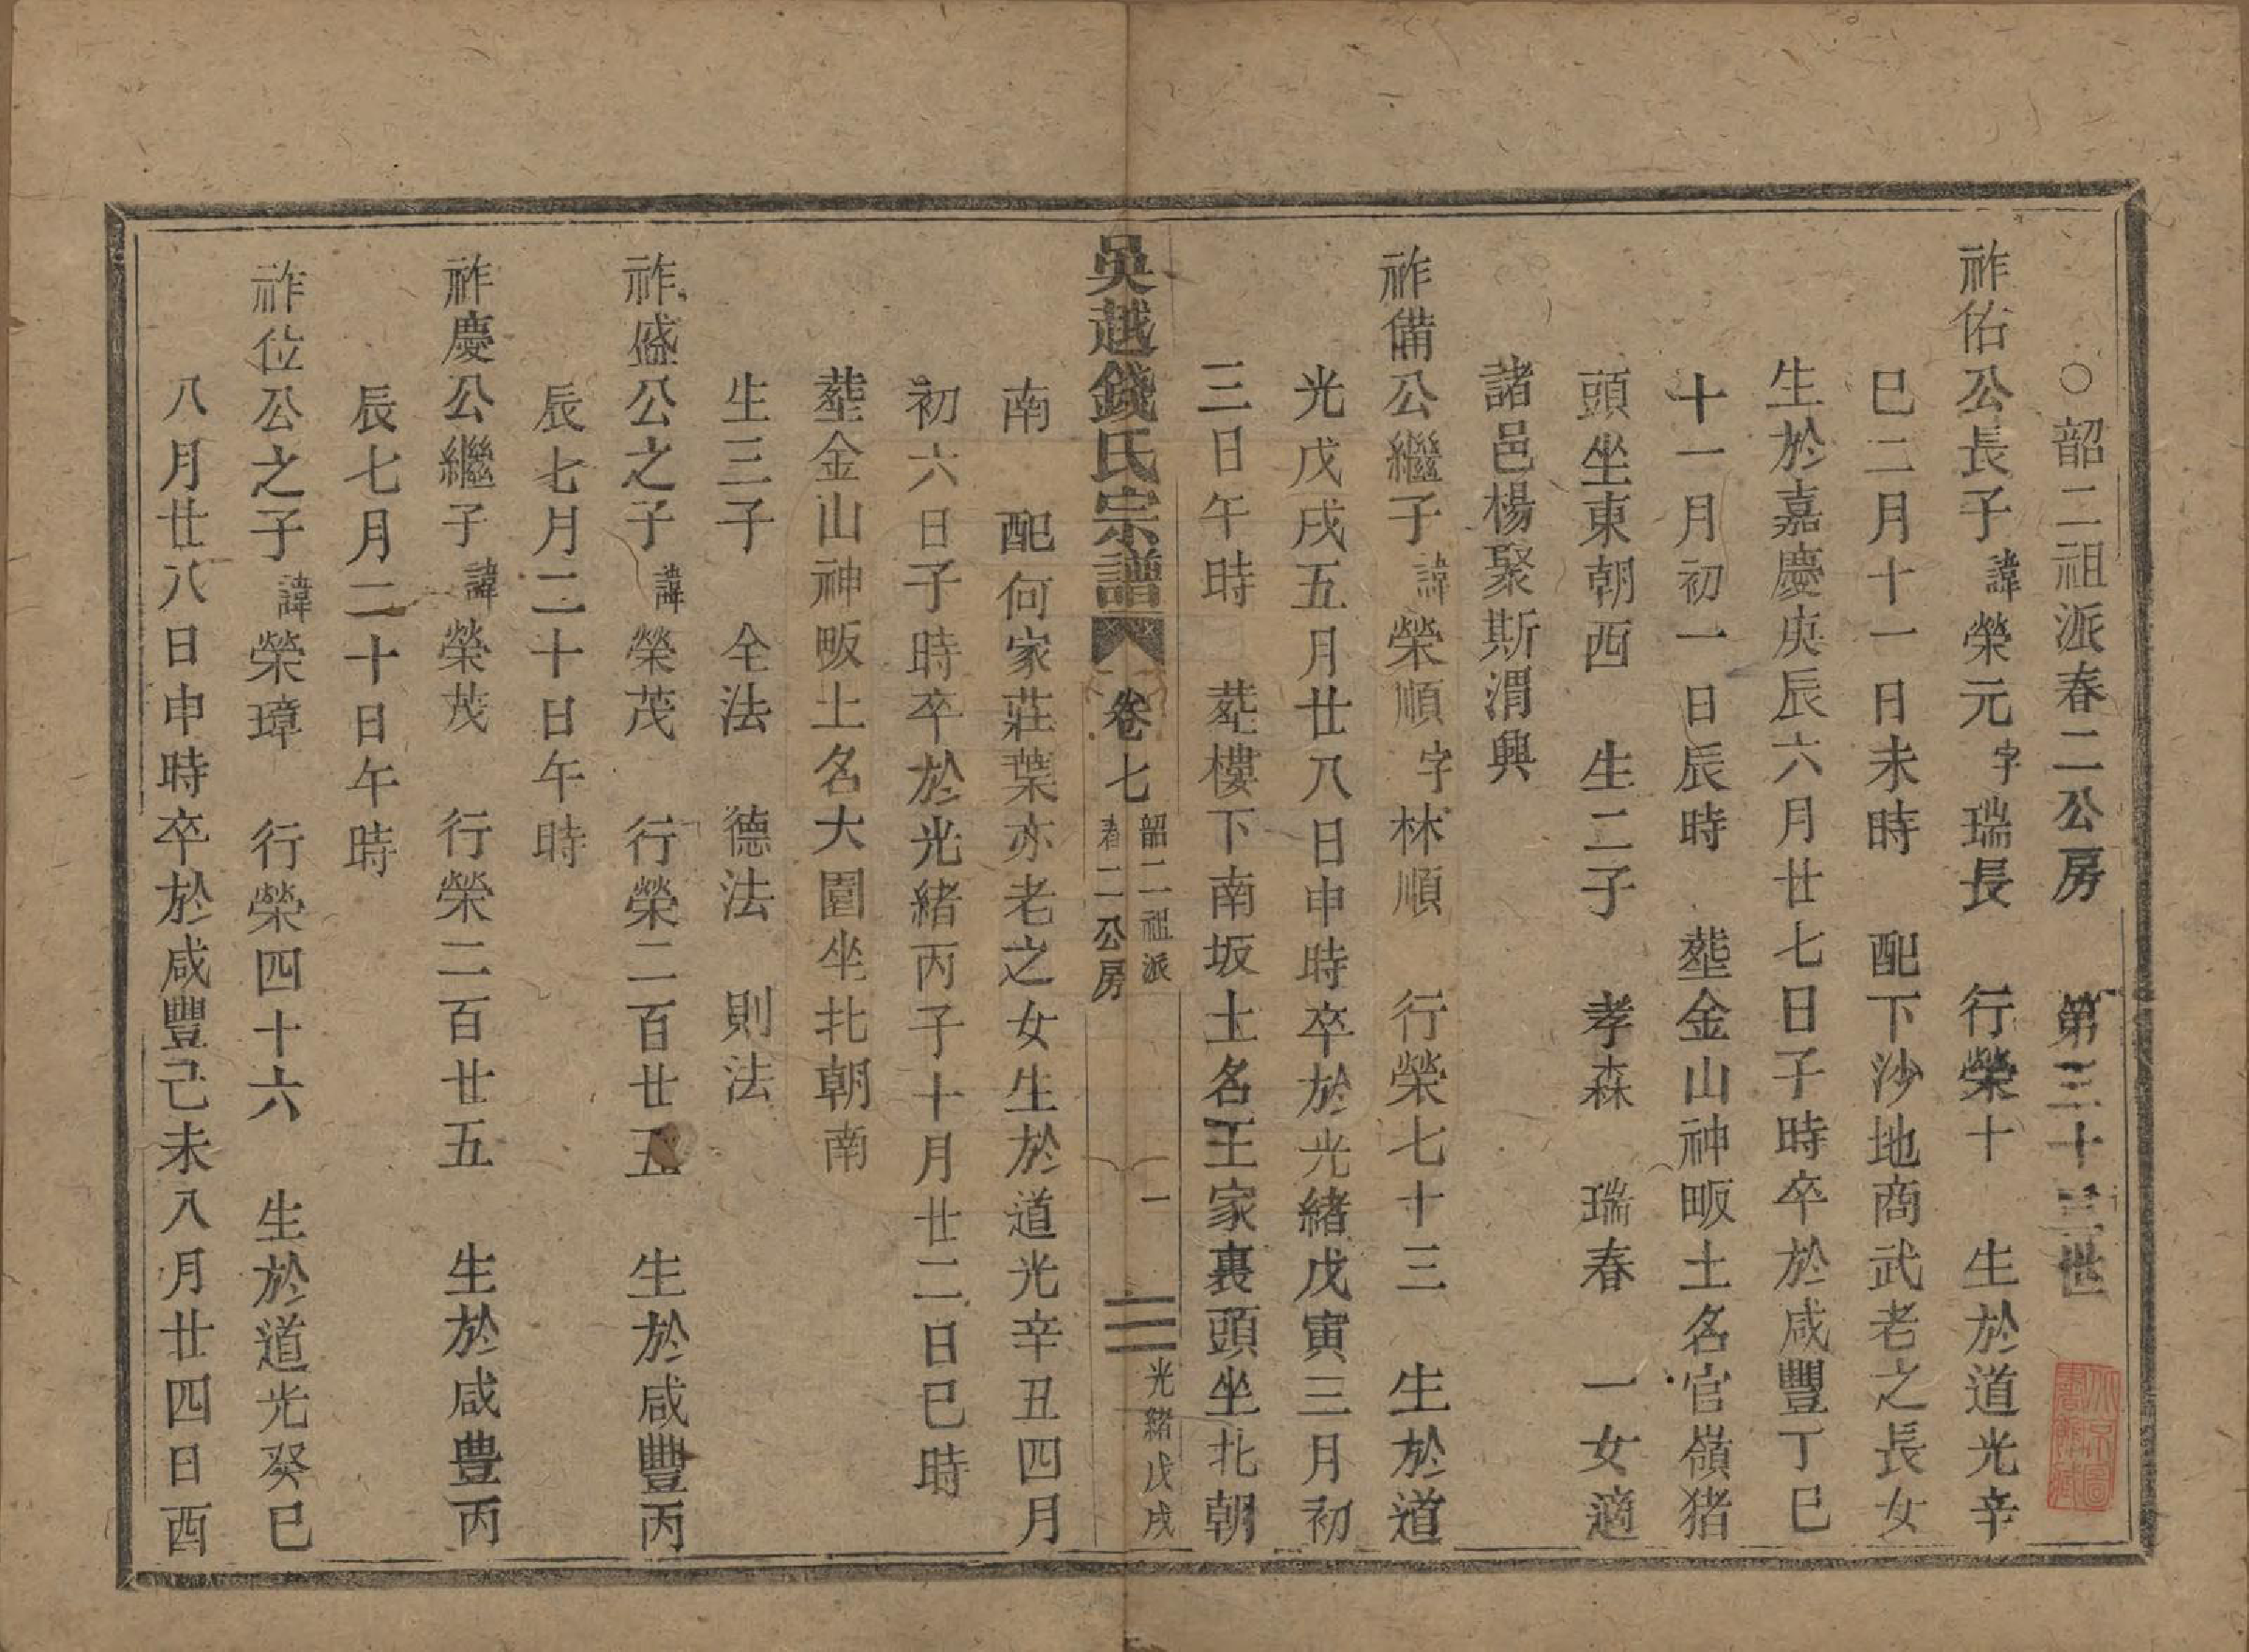 ○韶二祖派春二公房　第三十三世
祚佑公長子諱榮元字瑞長　行榮十　生於道光辛
巳二月十一日未時　配下沙地商武老之長女
生於嘉慶庚辰六月廿七日子時卒於咸豐丁巳
十一月初一日辰時　塟金山神畈土名官嶺猪
頭坐東朝西　生二子　孝森　瑞春　一女適
諸邑楊聚斯渭興
祚備公繼子諱榮順字林順　行榮七十三　生於道
光戊戌五月廿八日申時卒於光緒戊寅三月初
三日午時　塟樓下南坂土名王家裏頭坐北朝
吳越錢氏宗譜　卷七　韶二祖派　春二公房　一　光緒戊戌
南　配何家莊葉亦老之女生於道光辛丑四月
初六日子時卒於光緒丙子十月廿二日巳時
塟金山神畈土名大園坐北朝南
生三子　全法　德法　則法
祚盛公之子諱榮茂　行榮二百廿五　生於咸豐丙
辰七月二十日午時
祚慶公繼子諱榮茂　行榮二百廿五　生於咸豊丙
辰七月二十日午時
祚位公之子諱榮璋　行榮四十六　生於道光癸巳
八月廿八日申時卒於咸豐己未八月廿四日酉